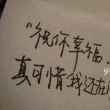 “祝你幸福，
真可惜我还在